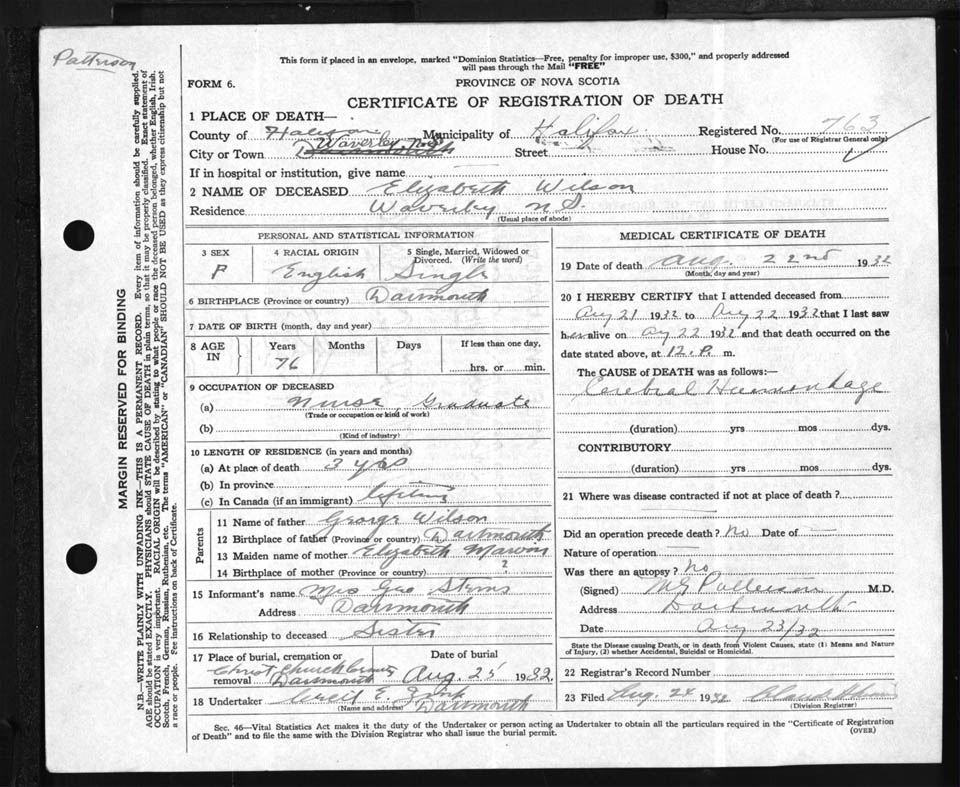 Patterson
This form if placed in an envelope, marked "Dominion Statistics—Free, penalty for improper use, $300," and properly addressed
will pass through the Mail "FREE"
FORM 6.
PROVINCE OF NOVA SCOTIA
CERTIFICATE OF REGISTRATION OF DEATH
1 PLACE OF DEATH—
County of Halifax Municipality of Halifax Registered No. 763
(For use of Registrar General only)
City or Town Waverley N.S. Dartmouth Street House No.
If in hospital or institution, give name
2 NAME OF DECEASED Elizabeth Wilson
Residence Waverley N.S.
(Usual place of abode)
PERSONAL AND STATISTICAL INFORMATION
3 SEX 4 RACIAL ORIGIN 5 Single, Married, Widowed or
Divorced. (Write the word)
F English Single
6 BIRTHPLACE (Province or country) Dartmouth
7 DATE OF BIRTH (month, day and year)
8 AGE IN Years Months Days If less than one day,
76 hrs. or min.
9 OCCUPATION OF DECEASED
(a) Nurse, Graduate
(Trade or occupation or kind of work)
(b)
(Kind of industry)
10 LENGTH OF RESIDENCE (in years and months)
(a) At place of death 3 yrs
(b) In province
(c) In Canada (if an immigrant) lifetime
Parents
11 Name of father George Wilson
12 Birthplace of father (Province or country) Dartmouth
13 Maiden name of mother Elizabeth
14 Birthplace of mother (Province or country) ?
15 Informant's name Mrs Geo Sterns
Address Dartmouth
16 Relationship to deceased Sister
17 Place of burial, cremation or removal Date of burial
Christ Church Dartmouth Aug. 25 1932
18 Undertaker E. Zink
(Name and address) Dartmouth
MEDICAL CERTIFICATE OF DEATH
19 Date of death Aug. 22nd 1932
(Month, day and year)
20 I HEREBY CERTIFY that I attended deceased from
Aug 21 1932 to Aug 22 1932 that I last saw
her alive on Aug 22 1932 and that death occurred on the
date stated above, at 12. P. m.
The CAUSE of DEATH was as follows:—
Cerebral Haemorrhage
(duration) yrs mos dys.
CONTRIBUTORY
(duration) yrs mos dys.
21 Where was disease contracted if not at place of death?
Did an operation precede death? No Date of
Nature of operation
Was there an autopsy? No
(Signed) Patterson M.D.
Address Dartmouth
Date Aug 23/32
State the Disease causing Death, or in death from Violent Causes, state (1) Means and Nature
of Injury, (2) whether Accidental, Suicidal or Homicidal.
22 Registrar's Record Number
23 Filed Aug. 24 1932
(Division Registrar)
Sec. 46—Vital Statistics Act makes it the duty of the Undertaker or person acting as Undertaker to obtain all the particulars required in the "Certificate of Registration
of Death" and to file the same with the Division Registrar who shall issue the burial permit.
(OVER)
MARGIN RESERVED FOR BINDING
N.B.—WRITE PLAINLY WITH UNFADING INK—THIS IS A PERMANENT RECORD. Every item of information should be carefully supplied.
AGE should be stated EXACTLY. PHYSICIANS should STATE CAUSE OF DEATH in plain terms, so that it may be properly classified. Exact statement of
OCCUPATION is very important. RACIAL ORIGIN will be described by stating to what people or race the deceased person belonged, whether English, Irish,
Scotch, French, German, Russian, Ruthenian, etc. The terms "AMERICAN" or "CANADIAN" SHOULD NOT BE USED as they express citizenship but not
a race or people. See instructions on back of Certificate.